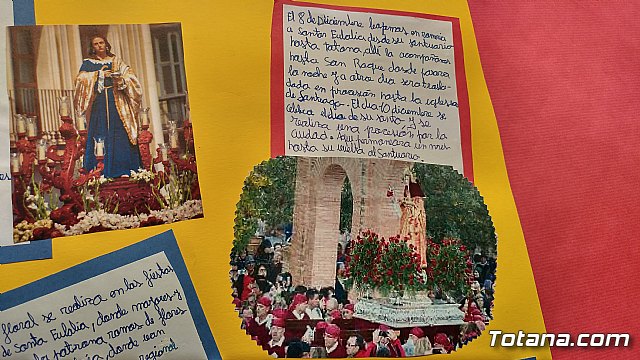 El 8 de Diciembre bajamos en romería
a Santa Eulalia desde su santuario
hasta totana, allí la acompañamos
hasta San Roque donde pasara
la noche y a otro día sera trasla-
dada en procesión hasta la iglesia
de Santiago. El día 10 diciembre se
celebra el día de su santo y se
realiza una procesión por la
ciudad. Aquí permanecerá un mes
hasta su vuelta al Santuario.
floral se realiza en las fiestas
de Santa Eulalia, donde mayores y
la patrona ramos de flores
donde van
regional
Totana.com